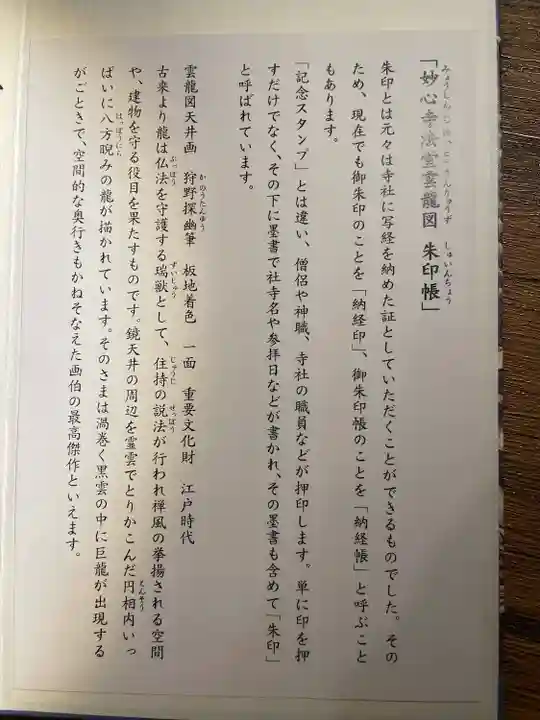 「妙心寺法堂雲龍図 朱印帳」
朱印とは元々は寺社に写経を納めた証としていただくことができるものでした。その
ため、現在でも御朱印のことを「納経印」、御朱印帳のことを「納経帳」と呼ぶこと
もあります。
「記念スタンプ」とは違い、僧侶や神職、寺社の職員などが押印します。単に印を押
すだけでなく、その下に墨書で社寺名や参拝日などが書かれ、その墨書も含めて「朱印」
と呼ばれています。
雲龍図天井画 狩野探幽筆 板地着色 一面 重要文化財 江戸時代
古来より龍は仏法を守護する瑞獣として、住持の説法が行われ禅風の挙揚される空間
や、建物を守る役目を果たすものです。鏡天井の周辺を霊雲でとりかこんだ円相内いっ
ぱいに八方睨みの龍が描かれています。そのさまは渦巻く黒雲の中に巨龍が出現する
がごときで、空間的な奥行きもかねそなえた画伯の最高傑作といえます。